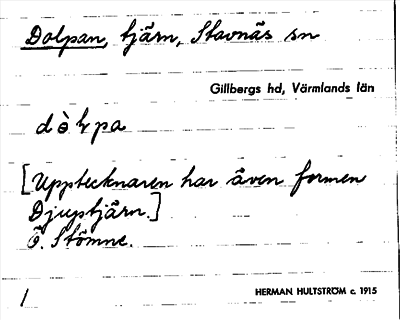 Dolpan, tjärn, Stavnäs sn
Gillbergs hd, Värmlands län
[Upptecknaren har även formen
Djuptjärn.]
Ö. Stömne.
1
HERMAN HULTSTRÖM c. 1915